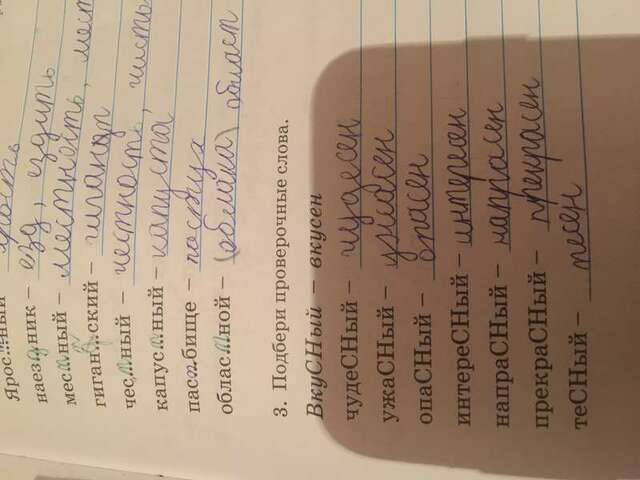 Ярос...ный – ярость
наез...ник – езд, ездить
мест...ный – местность, мест
гиган...ский – гигант
чес...ный – честность, чисты
капус...ный – капуста
пас...бище – пастух
облас...ной – (облака) област
3. Подбери проверочные слова.
ВкуСНый – вкусен
чудеСНый – чудесен
ужаСНый – ужасен
опаСНый – опасен
интереСНый – интересен
напраСНый – напрасен
прекраСНый – прекрасен
теСНый – тесен